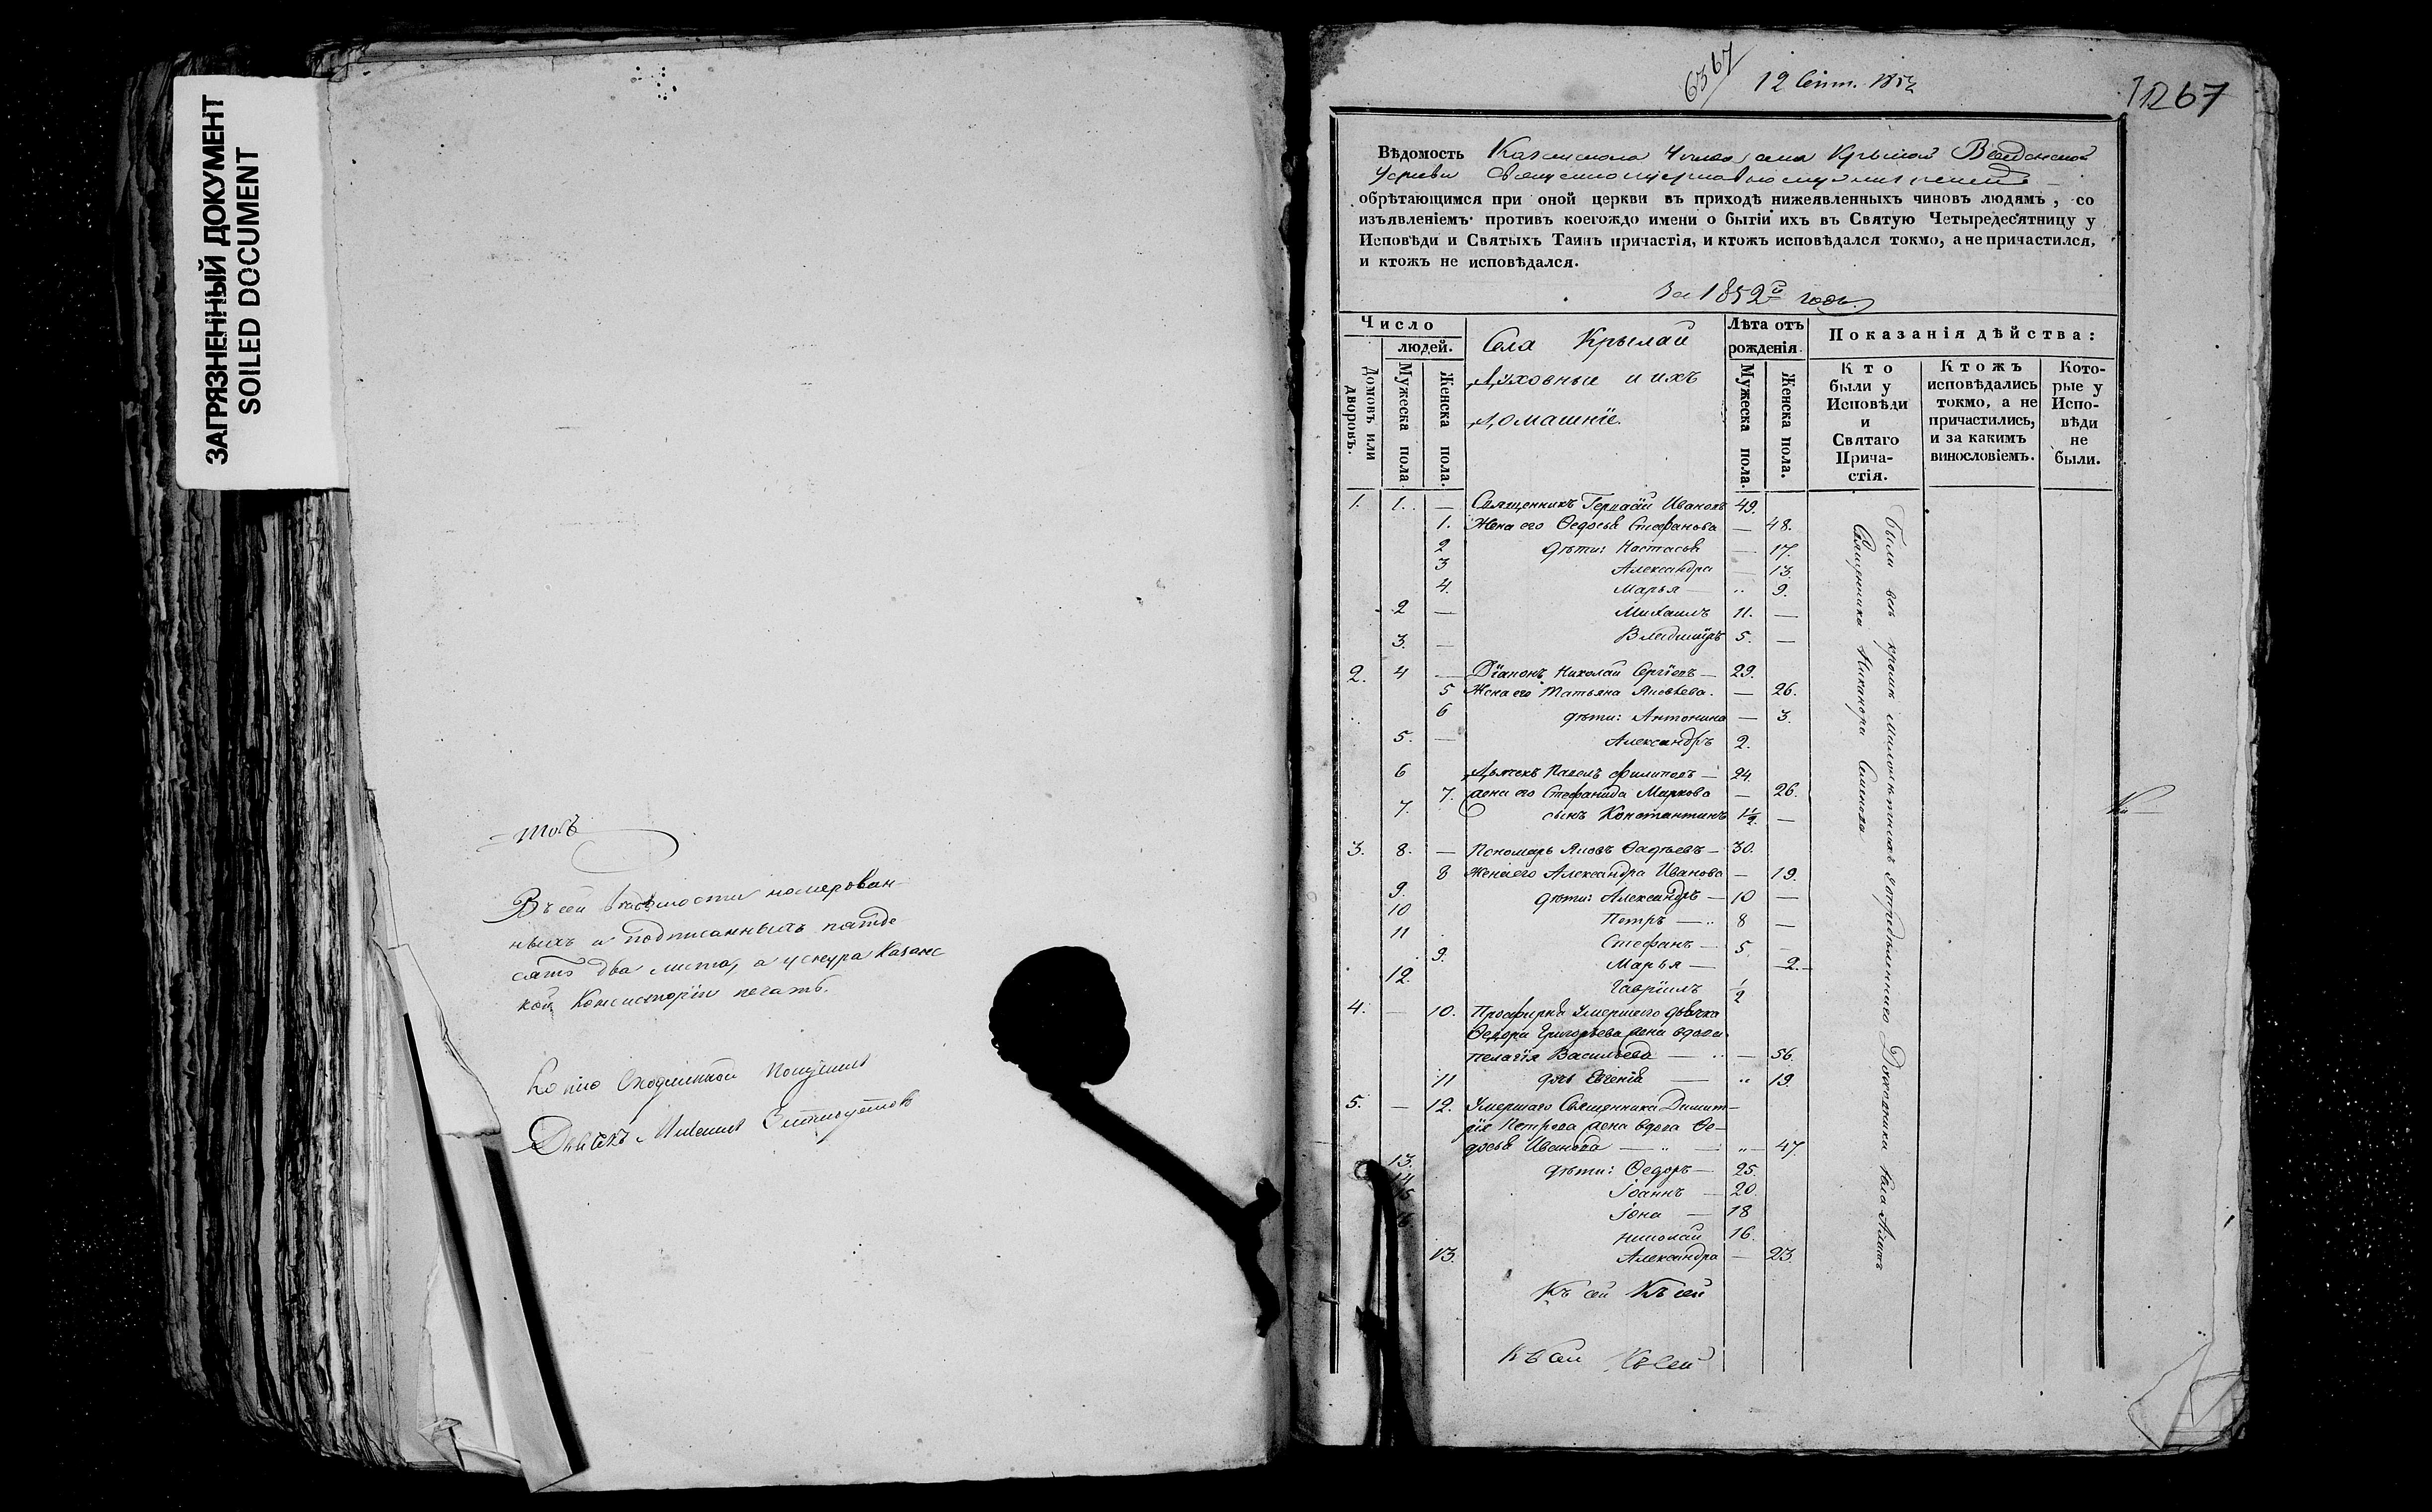 ЗАГРЯЗНЕННЫЙ ДОКУМЕНТ
SOILED DOCUMENT
Въ сей номерован-
ныхъ и подписанныхъ пятьде
сятъ два листа, а у снура Казанс
кой Консисторіи печать.
Копію получилъ
Дьячекъ Михаилъ
12 Сент. 1852
1267
Вѣдомость Казанскаго села Крылай Введенской
Церкви
обрѣтающимся при оной церкви въ приходѣ нижеявленныхъ чиновъ людямъ, со
изъявленіемъ противъ коегождо имени о бытіи ихъ въ Святую Четыредесятницу у
Исповѣди и Святыхъ Таинъ причастія, и ктожъ исповѣдался токмо, а не причастился,
и ктожъ не исповѣдался.
За 1852й годъ.
Число
людей.
Домовъ или дворовъ.
Мужеска пола
Женска пола.
Села Крылай
Духовные и ихъ
домашніе.
Лѣта отъ
рожденія.
Мужеска пола.
Женска пола.
Показанія дѣйства:
Кто
были у
Исповѣди
и
Святаго
Прича-
стія.
Ктожъ
исповѣдались
токмо, а не
причастились,
и за какимъ
винословіемъ.
Кото-
рые у
Испо-
вѣди
не
были.
1. 1. — Священникъ Ивановъ 49.
1. Жена его Ѳедосья Стефанова — 48.
2 дѣти: Настасья — 17.
3 Александра — 13.
4. Марья — 9.
2 — Михаилъ 11. —
3. — Владиміръ 5. —
2. 4 — Діаконъ Николай Сергіевъ — 29.
5 Жена его Татьяна Яковлева. — 26.
6 дѣти: Антонина — 3.
5. — Александръ 2.
6 Дьячекъ Павелъ Филиповъ — 24.
7. жена его Стефанида Маркова — 26.
7. сынъ Константинъ 1½ —
3. 8. — Пономарь Яковъ Ѳадѣевъ — 30.
8 Жена его Александра Иванова — 19.
9. дѣти: Александръ — 10 —
10 Петръ — 8 —
11 Стефанъ — 5 —
9. Марья — 2. —
12. Гавріилъ ½
4. — 10. Просфирня умершего дьячка
Ѳедора Григорьева жена вдова
Пелагія Васильева — — 56.
11 дочь Евгенія — 19.
5. — 12. Умершаго Священника Димит-
рія Петрова жена вдова Ѳе-
досья Иванова — 47.
13. дѣти: Ѳедоръ — 25.
14 Іоаннъ — 20.
15 Іона — 18
16 Николай 16.
13. Александра — 23.
Были всѣ кромѣ малолѣтныхъ у опредѣленнаго Духовника села
Священника Никанора Семенова
Къ сей Къ сей
Къ сей Къ сей